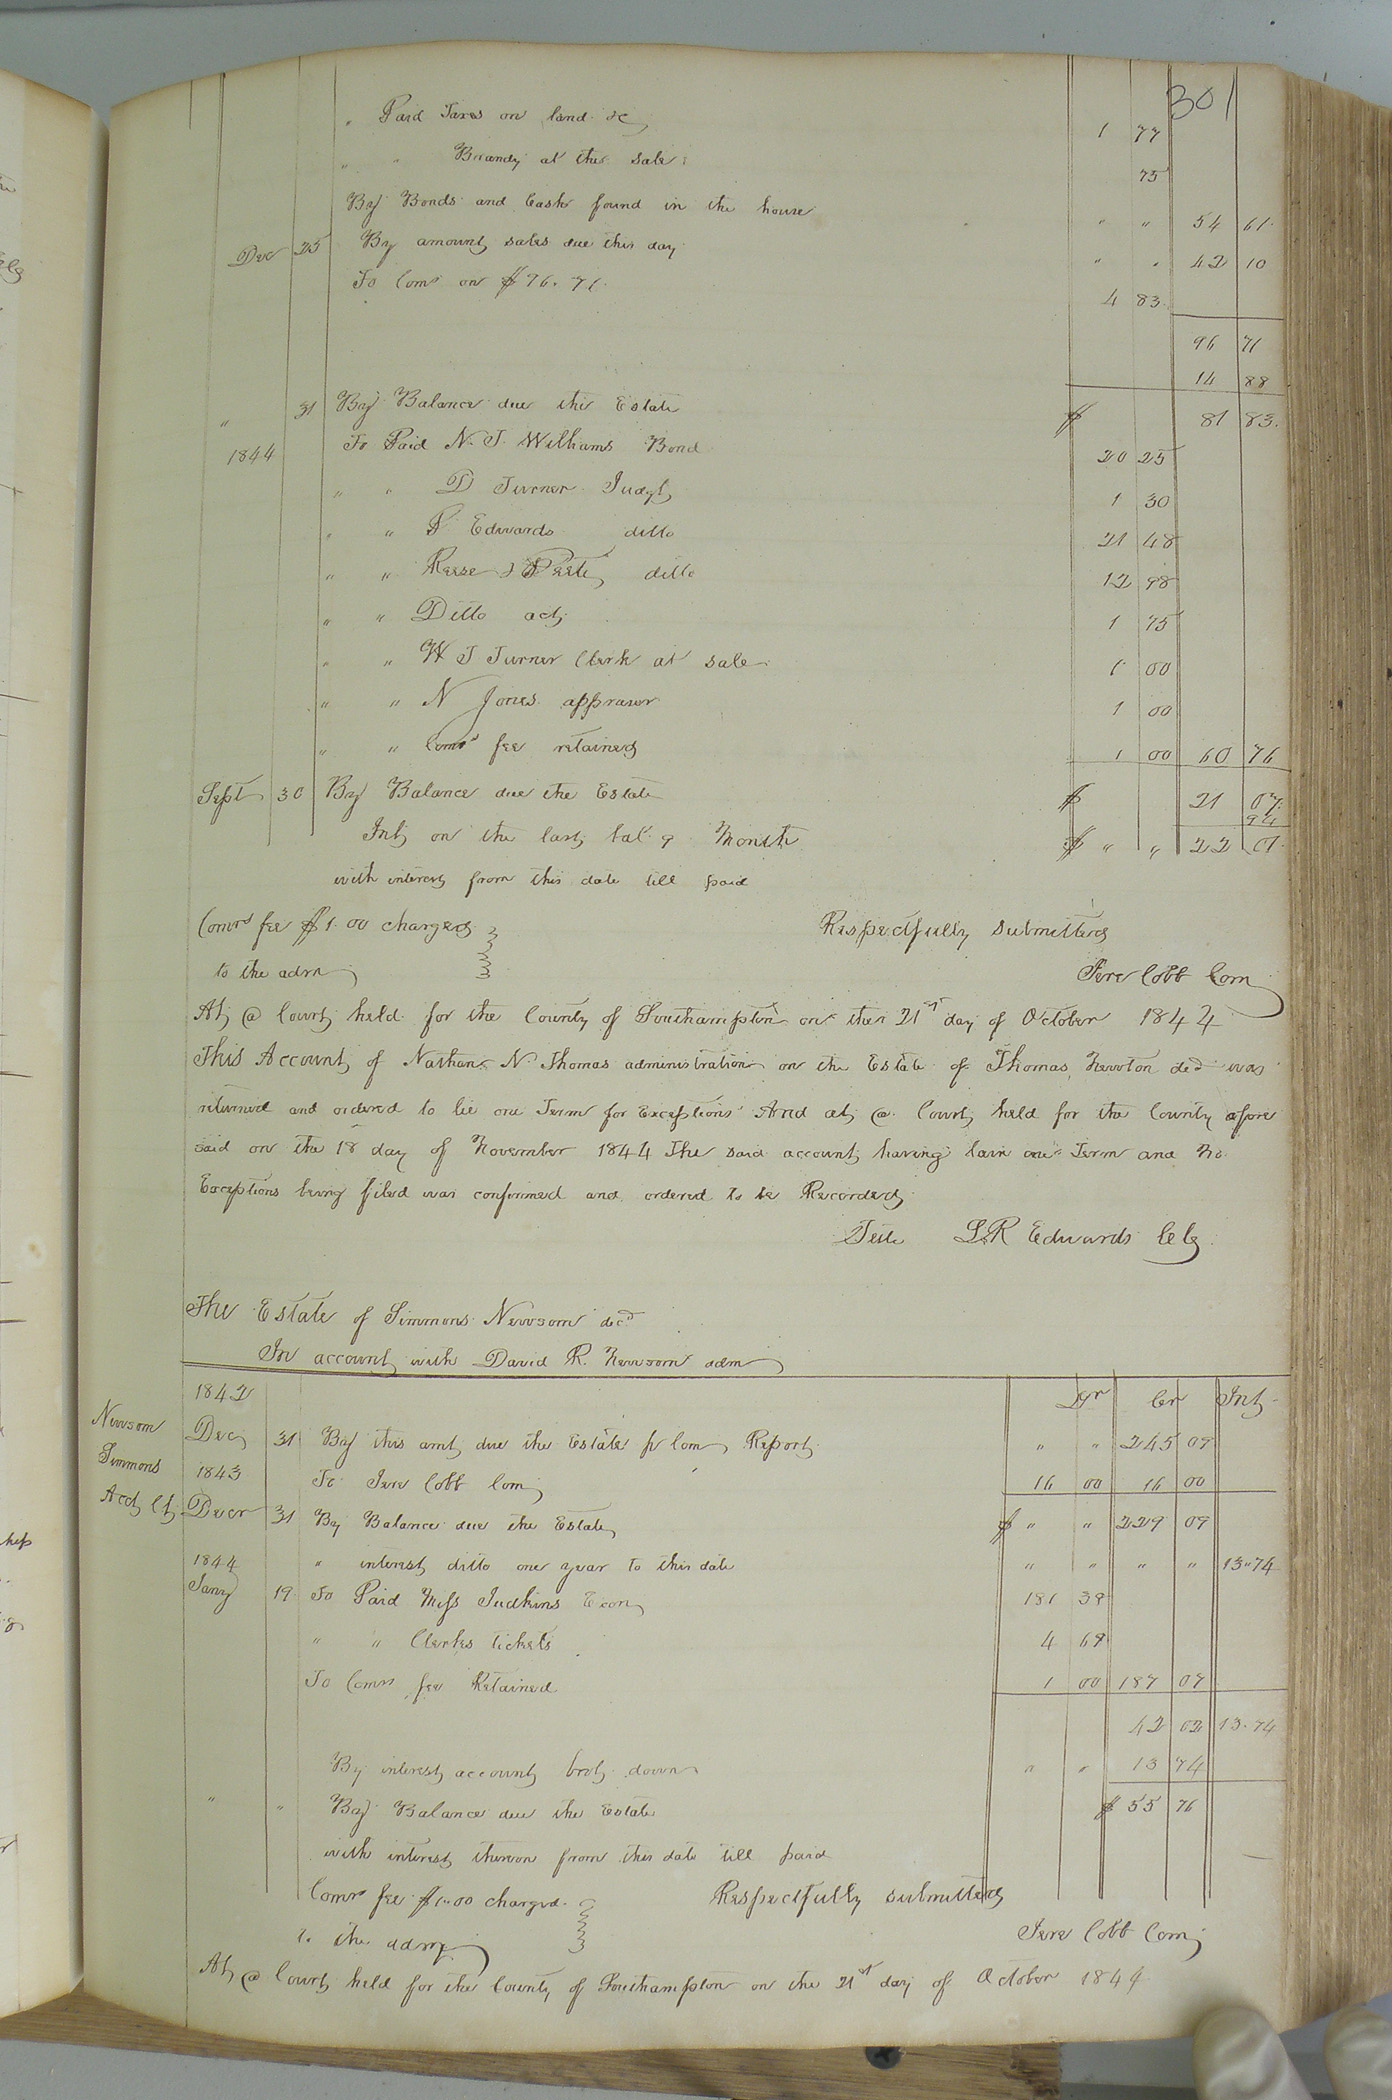 301
" Paid Taxes on land &c 1 77
" " Brandy at the sale 75
By Bonds and Cash found in the house " " 54 61
Dec 25 By amount sales due this day " " 42 10
To Coms on $96.71 4 83
96 71
14 88
" 31 By Balance due the Estate $ 81 83
1844 To Paid N. T. Williams Bond 20 25
" " D Turner Judgt 1 30
" " P Edwards ditto 21 48
" " Reese & Peete ditto 12 98
" " Ditto act 1 75
" " W T Turner Clerk at sale 1 00
" " N Jones appraiser 1 00
" " Comrs fee retained 1 00 60 76
Sept 30 By Balance due the Estate $ 21 07
Int on the last bal 9 Month 94
$ " " 22 01
with interest from this date till paid
Comrs fee $1.00 charged Respectfully submitted
to the adm Jere Cobb Com
At a Court held for the County of Southampton on the 21st day of October 1844
This Account of Nathan N. Thomas administration on the Estate of Thomas Newton decd was
returned and ordered to lie one Term for Exceptions And at a Court held for the County afore
said on the 18 day of November 1844 The said account having lain one Term and no
Exceptions being filed was confirmed and ordered to be Recorded
Teste L.R Edwards CClk
The Estate of Simmons Newsom decd
In account with David R. Newsom adm
1842 Dr Cr Int
Newsom
Simmons
Acct Ct
Dec 31 By this amt due the Estate pr Com Report " " 245 09
1843 To Jere Cobb Com 16 00 16 00
Decr 31 By Balance due the Estate $ " " 229 09
" interest ditto one year to this date " " " " 13 " 74
1844
Jany 19 To Paid Miss Judkins Exon 181 39
" " Clerks tickets 4 69
To Comrs fee Retained 1 00 187 07
42 02 13.74
By interest account brot down " " 13 74
" " By Balance due the Estate $ 55 76
with interest thereon from this date till paid
Comrs fee $1.00 charged Respectfully submitted
to the adm Jere Cobb Com
At a Court held for the County of Southampton on the 21st day of October 1844